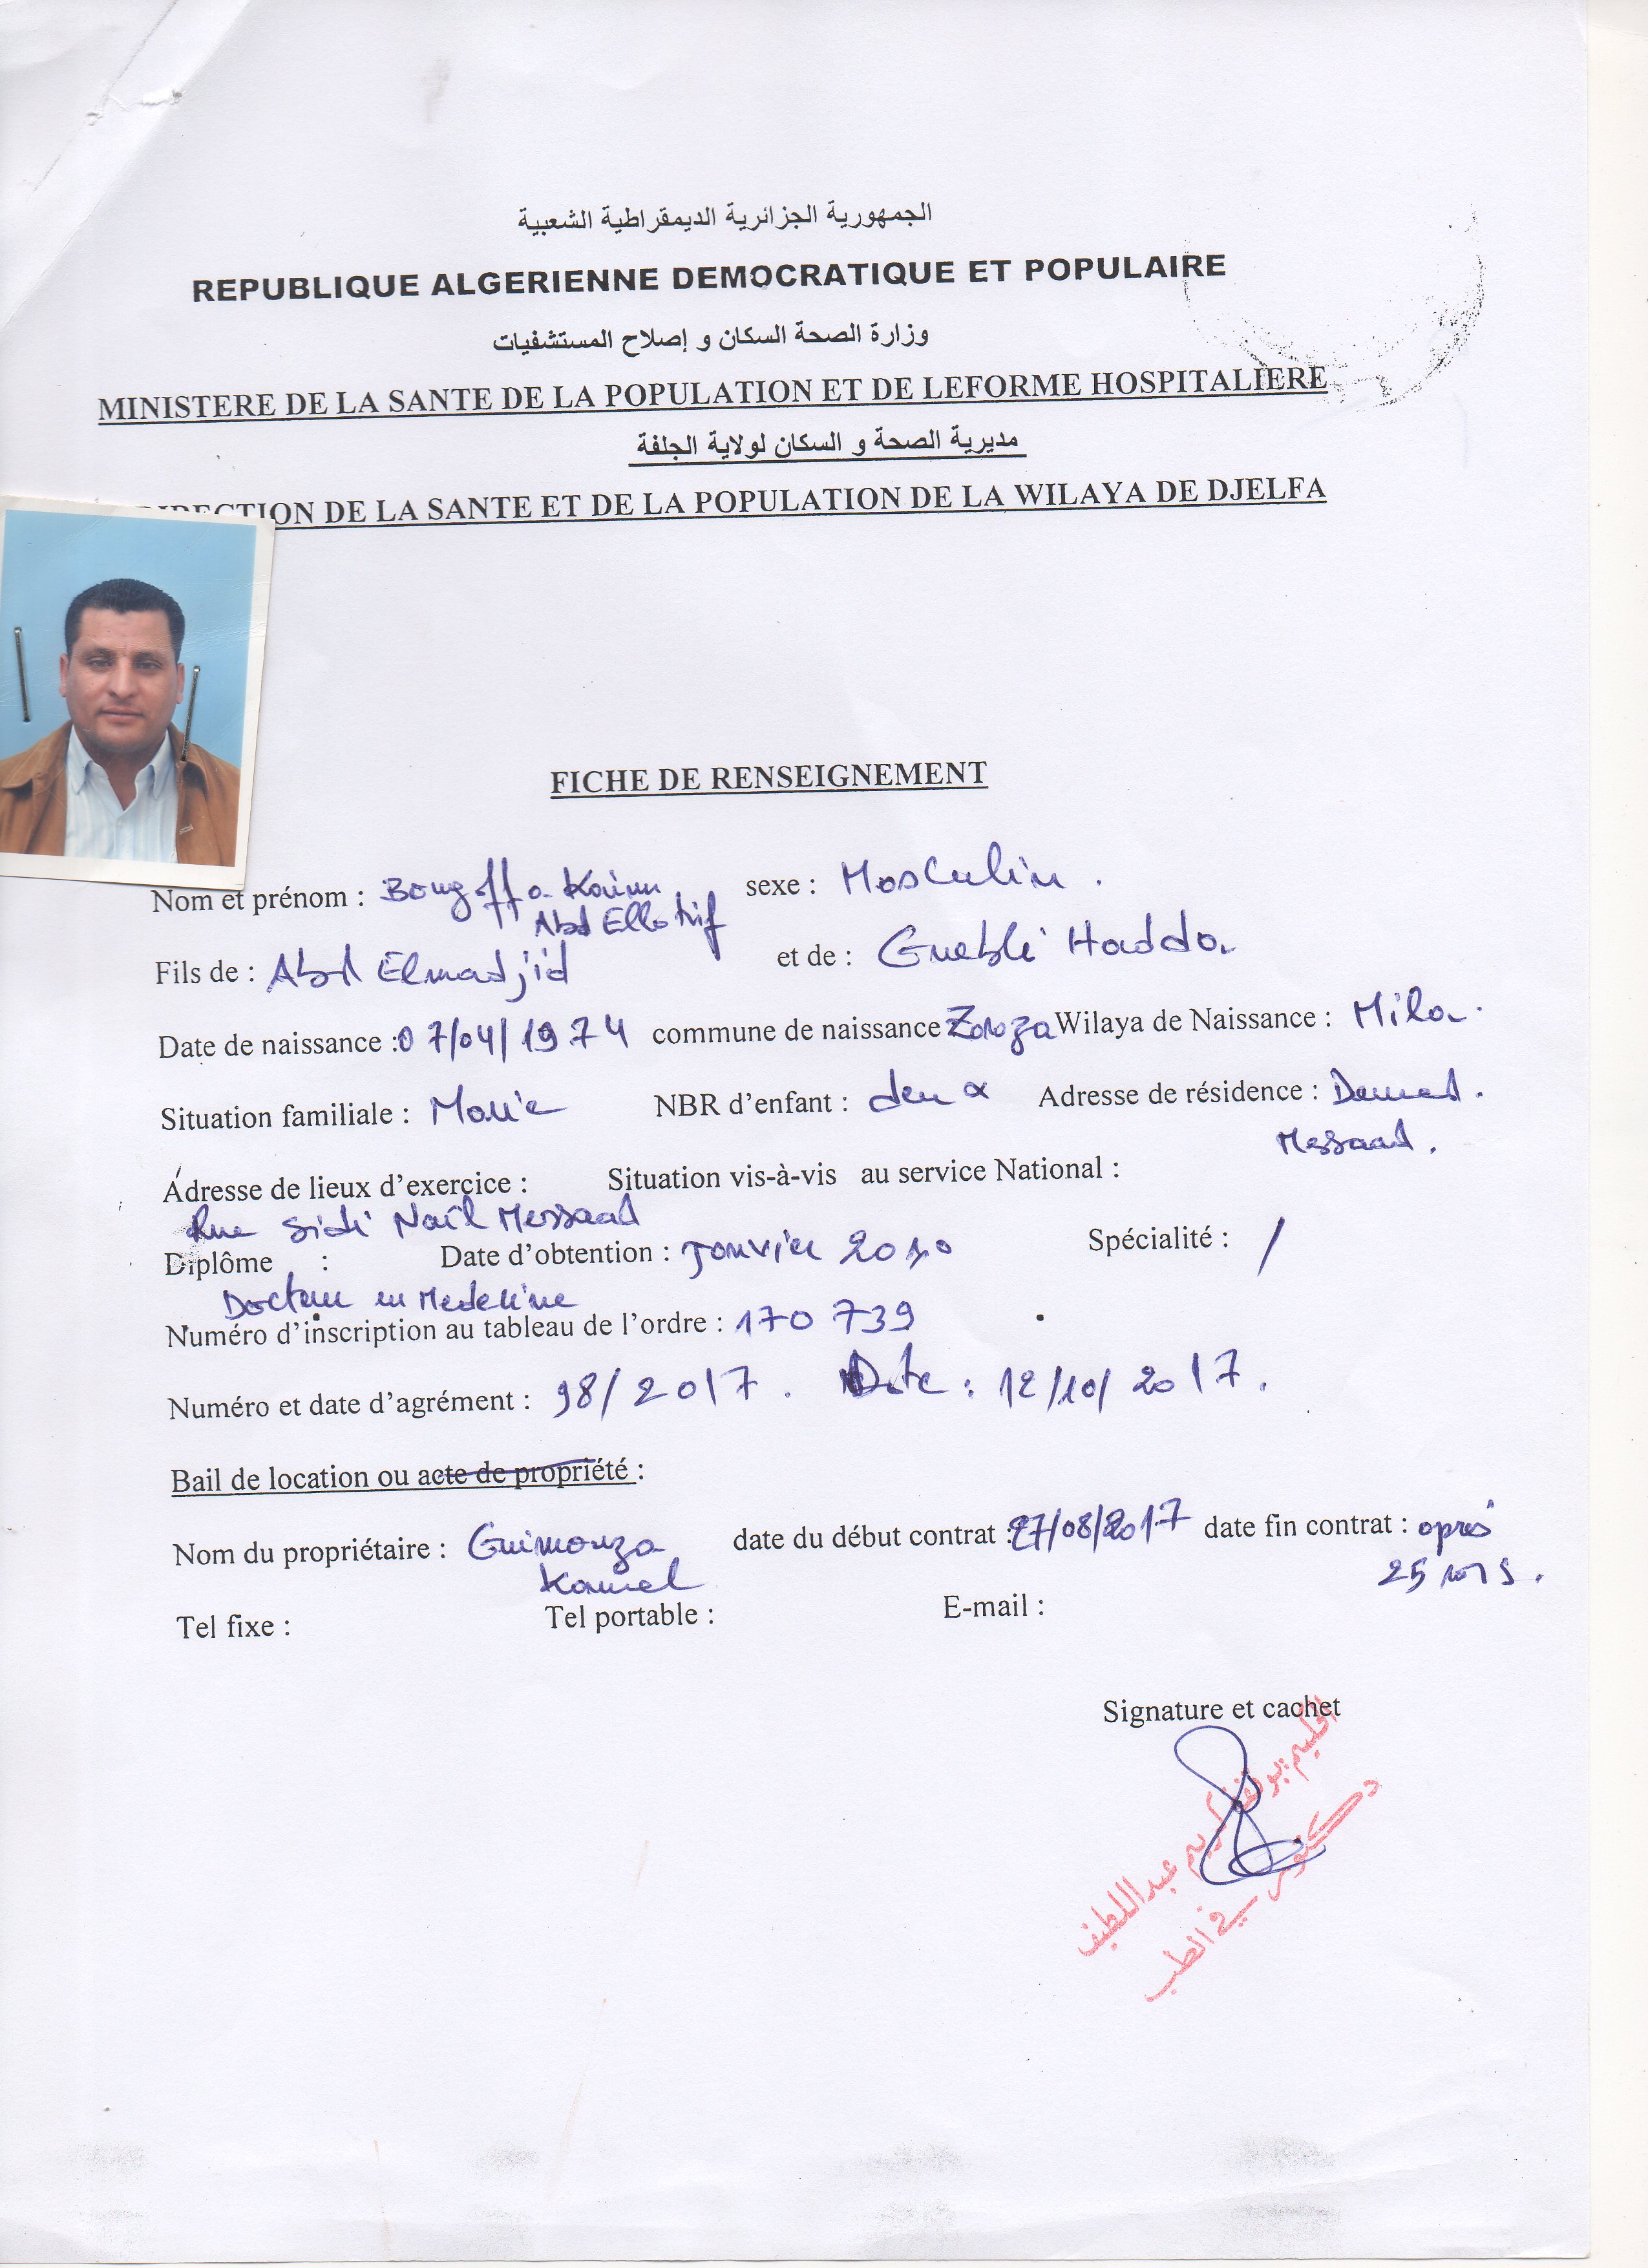 الجمهورية الجزائرية الديمقراطية الشعبية
REPUBLIQUE ALGERIENNE DEMOCRATIQUE ET POPULAIRE
وزارة الصحة السكان و إصلاح المستشفيات
MINISTERE DE LA SANTE DE LA POPULATION ET DE LEFORME HOSPITALIERE
مديرية الصحة و السكان لولاية الجلفة
DIRECTION DE LA SANTE ET DE LA POPULATION DE LA WILAYA DE DJELFA
FICHE DE RENSEIGNEMENT
Nom et prénom : Bougoffa Karim sexe : Masculin .
Abd Ellatif
Fils de : Abd Elmadjid et de : Guebli Hadda
Date de naissance : 07/04/1974 commune de naissance Zaroza Wilaya de Naissance : Mila .
Situation familiale : Marié NBR d'enfant : deux Adresse de résidence : Demed .
Messaad .
Adresse de lieux d'exercice : Situation vis-à-vis au service National :
Rue Sidi Nail Messaad
Diplôme : Date d'obtention : Janvier 2010 Spécialité : /
Docteur en Medecine
Numéro d'inscription au tableau de l'ordre : 170 739
Numéro et date d'agrément : 98/2017 . Date : 12/10/2017 .
Bail de location ou acte de propriété :
Nom du propriétaire : Guimouza date du début contrat : 27/08/2017 date fin contrat : après
Kamel 25 mois .
Tel fixe : Tel portable : E-mail :
Signature et cachet
الحكيم بوقفة كريم عبد اللطيف
دكتور في الطب